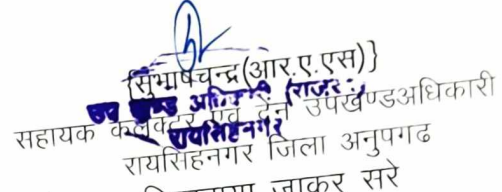 {सुभाषचन्द्र(आर.ए.एस)}
उप खण्ड अधिकारी (राजस्व)
सहायक कलेक्टर एवं उपखंण्डअधिकारी
रायसिंहनगर
रायसिहनगर जिला अनुपगढ
जाकर सरे